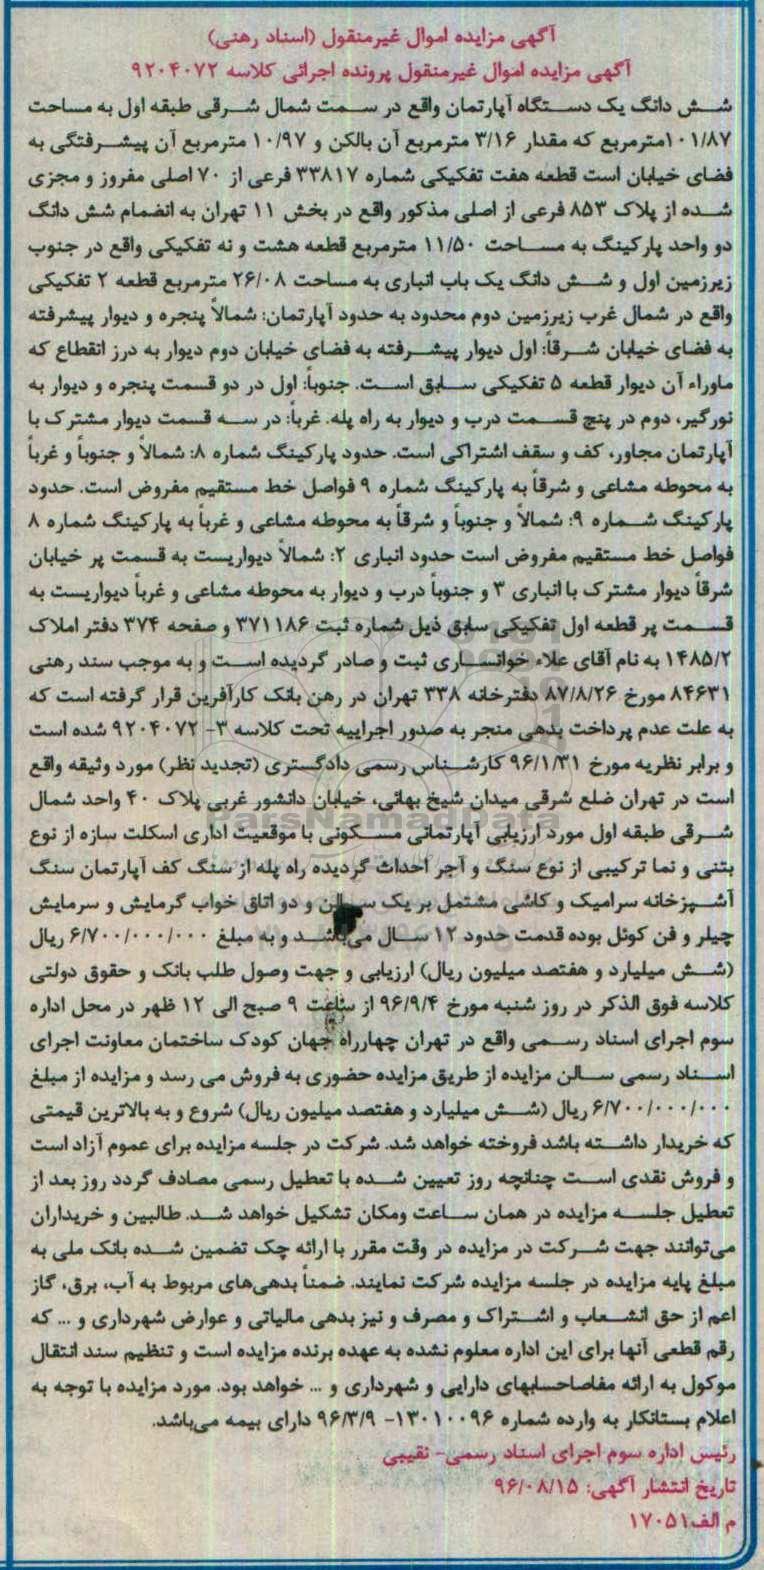 آگهی مزایده اموال غیرمنقول (اسناد رهنی)
آگهی مزایده اموال غیرمنقول پرونده اجرائی کلاسه ۹۲۰۴۰۷۲
شش دانگ یک دستگاه آپارتمان واقع در سمت شمال شرقی طبقه اول به مساحت
۱۰۱/۸۷مترمربع که مقدار ۳/۱۶ مترمربع آن بالکن و ۱۰/۹۷ مترمربع آن پیشرفتگی به
فضای خیابان است قطعه هفت تفکیکی شماره ۳۳۸۱۷ فرعی از ۷۰ اصلی مفروز و مجزی
شده از پلاک ۸۵۳ فرعی از اصلی مذکور واقع در بخش ۱۱ تهران به انضمام شش دانگ
دو واحد پارکینگ به مساحت ۱۱/۵۰ مترمربع قطعه هشت و نه تفکیکی واقع در جنوب
زیرزمین اول و شش دانگ یک باب انباری به مساحت ۲۶/۰۸ مترمربع قطعه ۲ تفکیکی
واقع در شمال غرب زیرزمین دوم محدود به حدود آپارتمان: شمالاً پنجره و دیوار پیشرفته
به فضای خیابان شرقاً: اول دیوار پیشرفته به فضای خیابان دوم دیوار به درز انقطاع که
ماوراء آن دیوار قطعه ۵ تفکیکی سابق است. جنوباً: اول در دو قسمت پنجره و دیوار به
نورگیر، دوم در پنج قسمت درب و دیوار به راه پله. غرباً: در سه قسمت دیوار مشترک با
آپارتمان مجاور، کف و سقف اشتراکی است. حدود پارکینگ شماره ۸: شمالاً و جنوباً و غرباً
به محوطه مشاعی و شرقاً به پارکینگ شماره ۹ فواصل خط مستقیم مفروض است. حدود
پارکینگ شماره ۹: شمالاً و جنوباً و شرقاً به محوطه مشاعی و غرباً به پارکینگ شماره ۸
فواصل خط مستقیم مفروض است حدود انباری ۲: شمالاً دیواریست به قسمت پر خیابان
شرقاً دیوار مشترک با انباری ۳ و جنوباً درب و دیوار به محوطه مشاعی و غرباً دیواریست به
قسمت پر قطعه اول تفکیکی سابق ذیل شماره ثبت ۳۷۱۱۸۶ و صفحه ۳۷۴ دفتر املاک
۱۴۸۵/۲ به نام آقای علاء خوانساری ثبت و صادر گردیده است و به موجب سند رهنی
۸۴۶۳۱ مورخ ۸۷/۸/۲۶ دفترخانه ۳۳۸ تهران در رهن بانک کارآفرین قرار گرفته است که
به علت عدم پرداخت بدهی منجر به صدور اجراییه تحت کلاسه ۳- ۹۲۰۴۰۷۲ شده است
و برابر نظریه مورخ ۹۶/۱/۳۱ کارشناس رسمی دادگستری (تجدید نظر) مورد وثیقه واقع
است در تهران ضلع شرقی میدان شیخ بهائی، خیابان دانشور غربی پلاک ۴۰ واحد شمال
شرقی طبقه اول مورد ارزیابی آپارتمانی مسکونی با موقعیت اداری اسکلت سازه از نوع
بتنی و نما ترکیبی از نوع سنگ و آجر احداث گردیده راه پله از سنگ کف آپارتمان سنگ
آشپزخانه سرامیک و کاشی مشتمل بر یک سالن و دو اتاق خواب گرمایش و سرمایش
چیلر و فن کوئل بوده قدمت حدود ۱۲ سال می‌باشد و به مبلغ ۶/۷۰۰/۰۰۰/۰۰۰ ریال
(شش میلیارد و هفتصد میلیون ریال) ارزیابی و جهت وصول طلب بانک و حقوق دولتی
کلاسه فوق الذکر در روز شنبه مورخ ۹۶/۹/۴ از ساعت ۹ صبح الی ۱۲ ظهر در محل اداره
سوم اجرای اسناد رسمی واقع در تهران چهارراه جهان کودک ساختمان معاونت اجرای
اسناد رسمی سالن مزایده از طریق مزایده حضوری به فروش می رسد و مزایده از مبلغ
۶/۷۰۰/۰۰۰/۰۰۰ ریال (شش میلیارد و هفتصد میلیون ریال) شروع و به بالاترین قیمتی
که خریدار داشته باشد فروخته خواهد شد. شرکت در جلسه مزایده برای عموم آزاد است
و فروش نقدی است چنانچه روز تعیین شده با تعطیل رسمی مصادف گردد روز بعد از
تعطیل جلسه مزایده در همان ساعت ومکان تشکیل خواهد شد. طالبین و خریداران
می‌توانند جهت شرکت در مزایده در وقت مقرر با ارائه چک تضمین شده بانک ملی به
مبلغ پایه مزایده در جلسه مزایده شرکت نمایند. ضمناً بدهی‌های مربوط به آب، برق، گاز
اعم از حق انشعاب و اشتراک و مصرف و نیز بدهی مالیاتی و عوارض شهرداری و ... که
رقم قطعی آنها برای این اداره معلوم نشده به عهده برنده مزایده است و تنظیم سند انتقال
موکول به ارائه مفاصاحسابهای دارایی و شهرداری و ... خواهد بود. مورد مزایده با توجه به
اعلام بستانکار به وارده شماره ۱۳۰۱۰۰۹۶- ۹۶/۳/۹ دارای بیمه می‌باشد.
رئیس اداره سوم اجرای اسناد رسمی- نقیبی
تاریخ انتشار آگهی: ۹۶/۰۸/۱۵
م الف۱۷۰۵۱
ParsNamadData